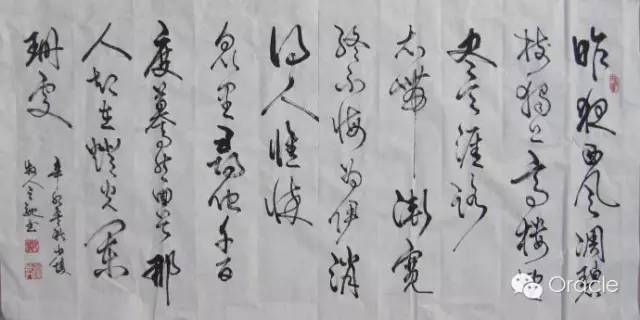 昨夜西风凋碧
树獨上高樓望
尽天涯路
衣帶漸寬
终不悔为伊消
得人憔悴
眾里尋他千百
度驀然回首那
人却在燈火阑
珊處
辛卯年秋
Oracle